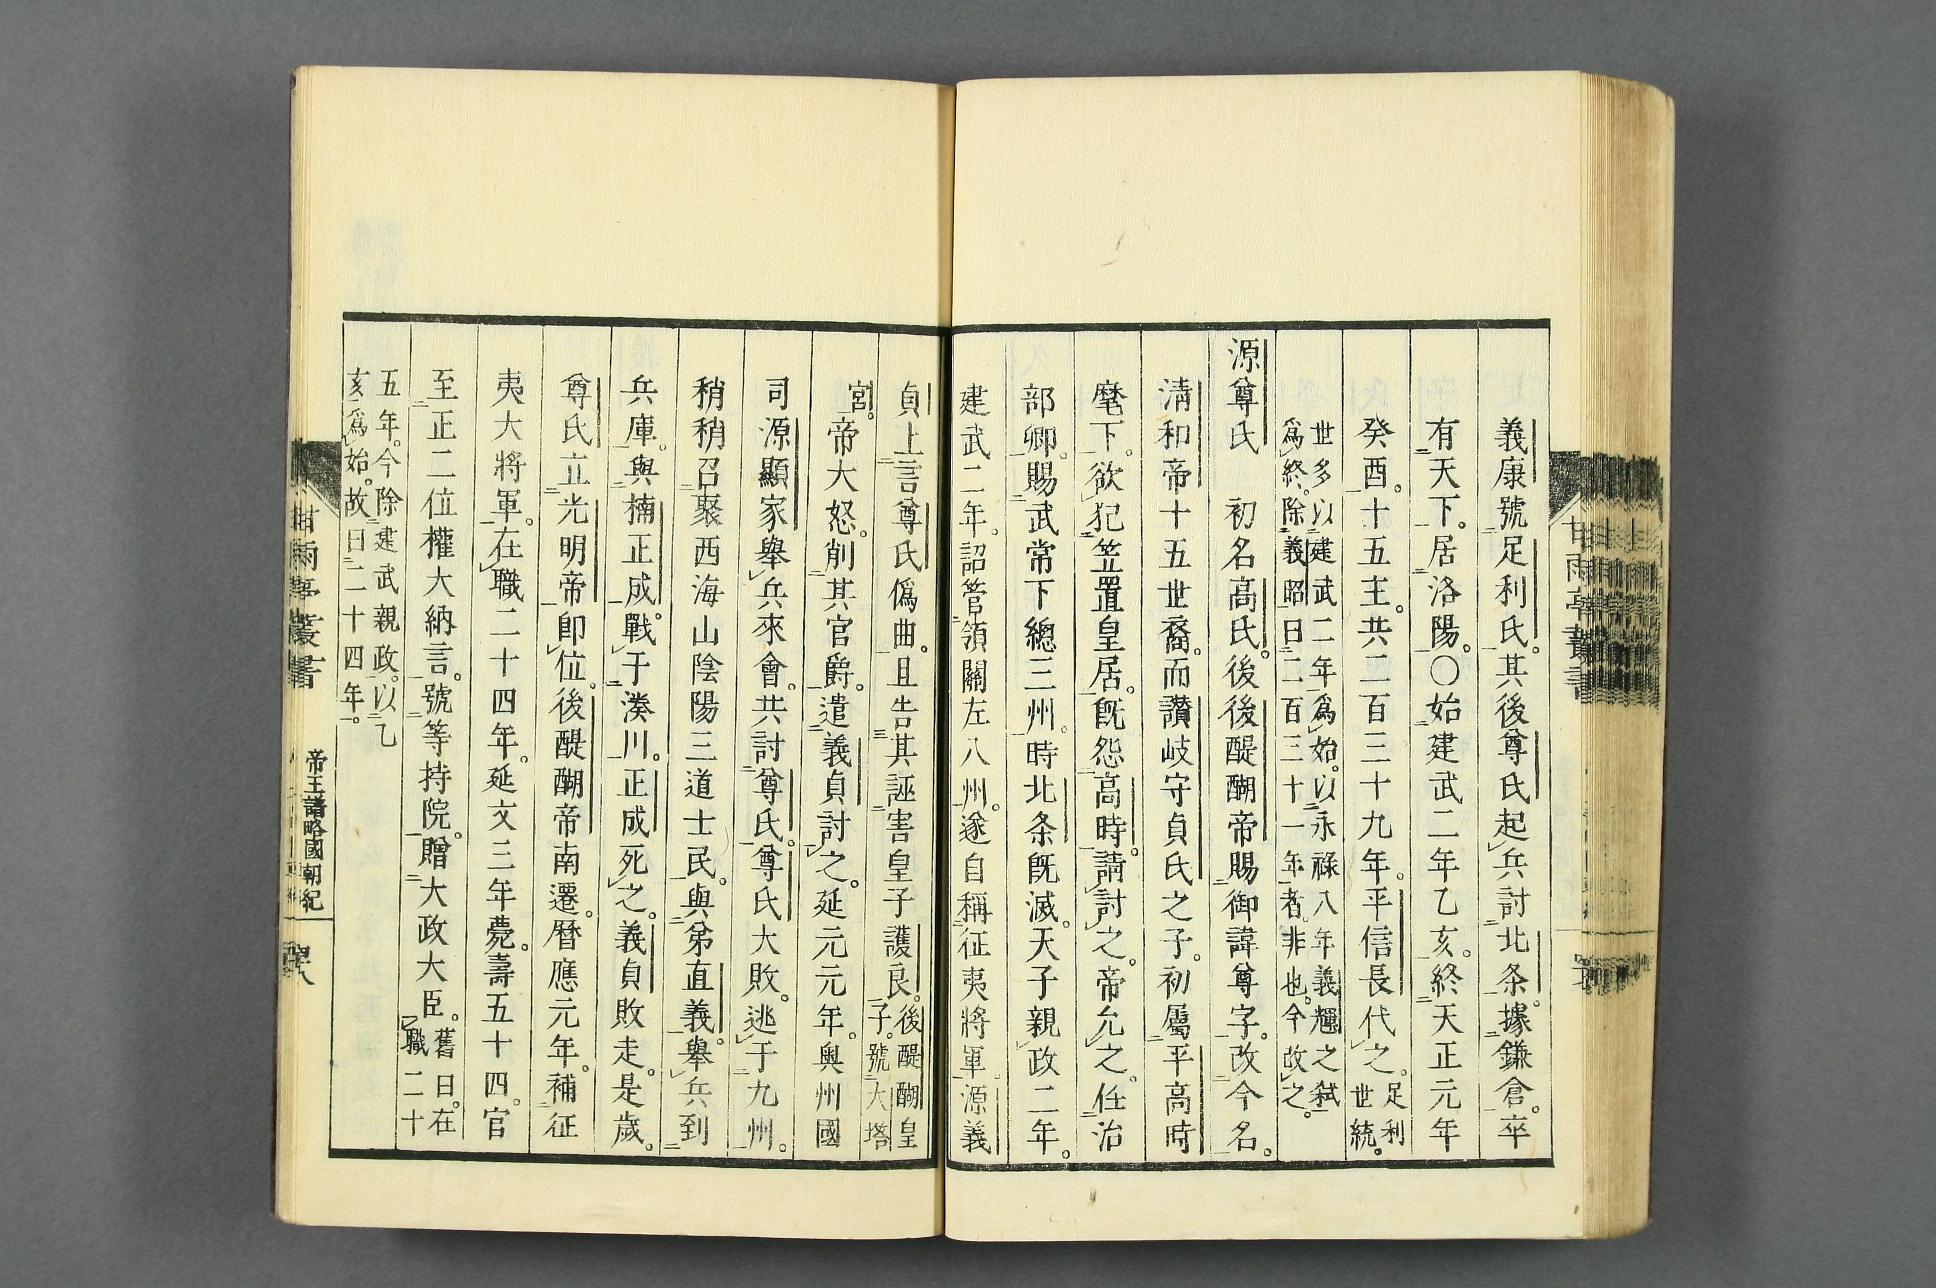 義康號足利氏。其後尊氏起兵討北条。據鎌倉。卒
有天下。居洛陽。〇始建武二年乙亥。終天正元年
癸酉。十五主。共二百三十九年。平信長代之。足利
世統。
世多以建武二年爲始。以永祿八年義輝之弑
爲終。除義昭曰二百三十一年者。非也。今改之。
源尊氏 初名高氏。後後醍醐帝賜御諱尊字。改今名。
淸和帝十五世裔。而讃岐守貞氏之子。初屬平高時
麾下。欲犯笠置皇居。旣怨高時。請討之。帝允之。任治
部卿。賜武常下總三州。時北条旣滅。天子親政二年。
建武二年。詔管領關左八州。遂自稱征夷將軍。源義
貞上言尊氏僞曲。且告其誣害皇子護良。後醍醐皇
子。號大塔
宮。帝大怒。削其官爵。遣義貞討之。延元元年。奥州國
司源顯家舉兵來會。共討尊氏。尊氏大敗。逃于九州。
稍稍召聚西海山陰陽三道士民。與弟直義舉兵到
兵庫。與楠正成戰于湊川。正成死之。義貞敗走。是歲。
尊氏立光明帝卽位。後醍醐帝南遷。曆應元年。補征
夷大將軍。在職二十四年。延文三年薨。壽五十四。官
至正二位權大納言。號等持院。贈大政大臣。舊曰。在
職二十
五年。今除建武親政。以乙
亥爲始。故曰二十四年。
甘雨亭叢書
帝王諸略國朝紀
四十八
甘雨亭叢書